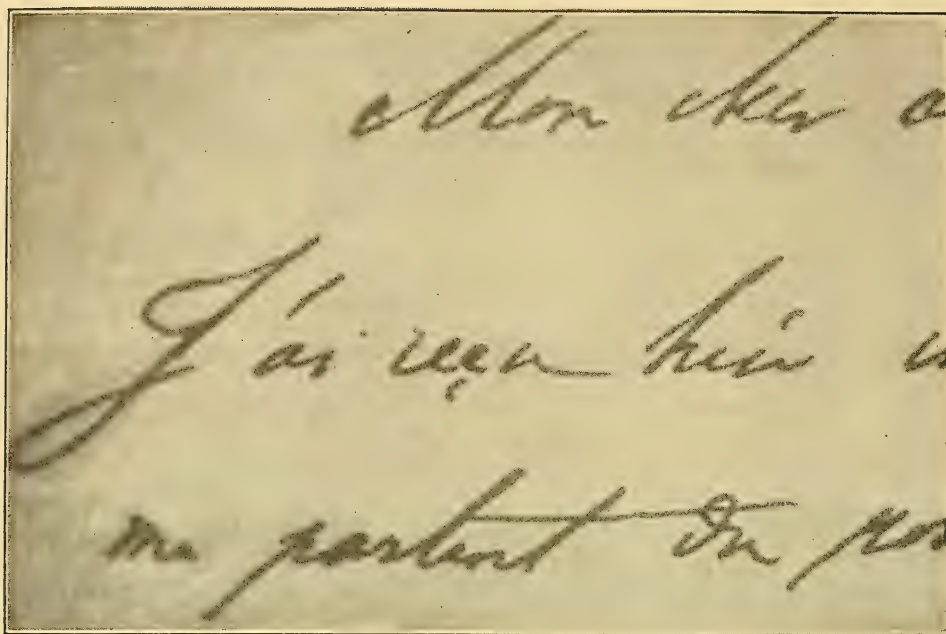 Mon cher
J'ai reçu hier
me parlent du